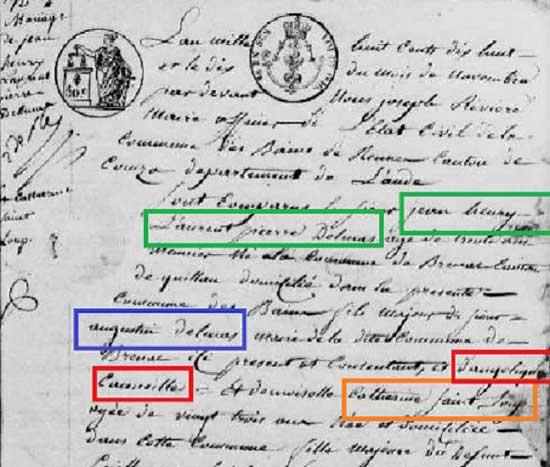 Mariage
de jean
henry
Laurent
pierre
Delmas
et Catherine
Saint
Loup.
50c
L'an mille huit cents dix huit
et le dix du mois de Novembre
par devant Nous joseph Rivière
Maire officier de l'Etat Civil de la
Commune des Bains de Rennes Canton de
Couiza departement de L'aude
sont Comparus le sieur jean henry
Laurent pierre Delmas agé de trente ans
né a la Commune de Brenac Canton
de quillan domicilié dans la presente
Commune des Bains fils majeur de sieur
augustin delmas maire de la dite Commune de
Brenac ici present et Consentant, et d'angelique
Cauneille = Et demoiselle Catherine Saint Loup
agée de vingt trois ans née et domiciliée
dans cette Commune fille majeure du defunt